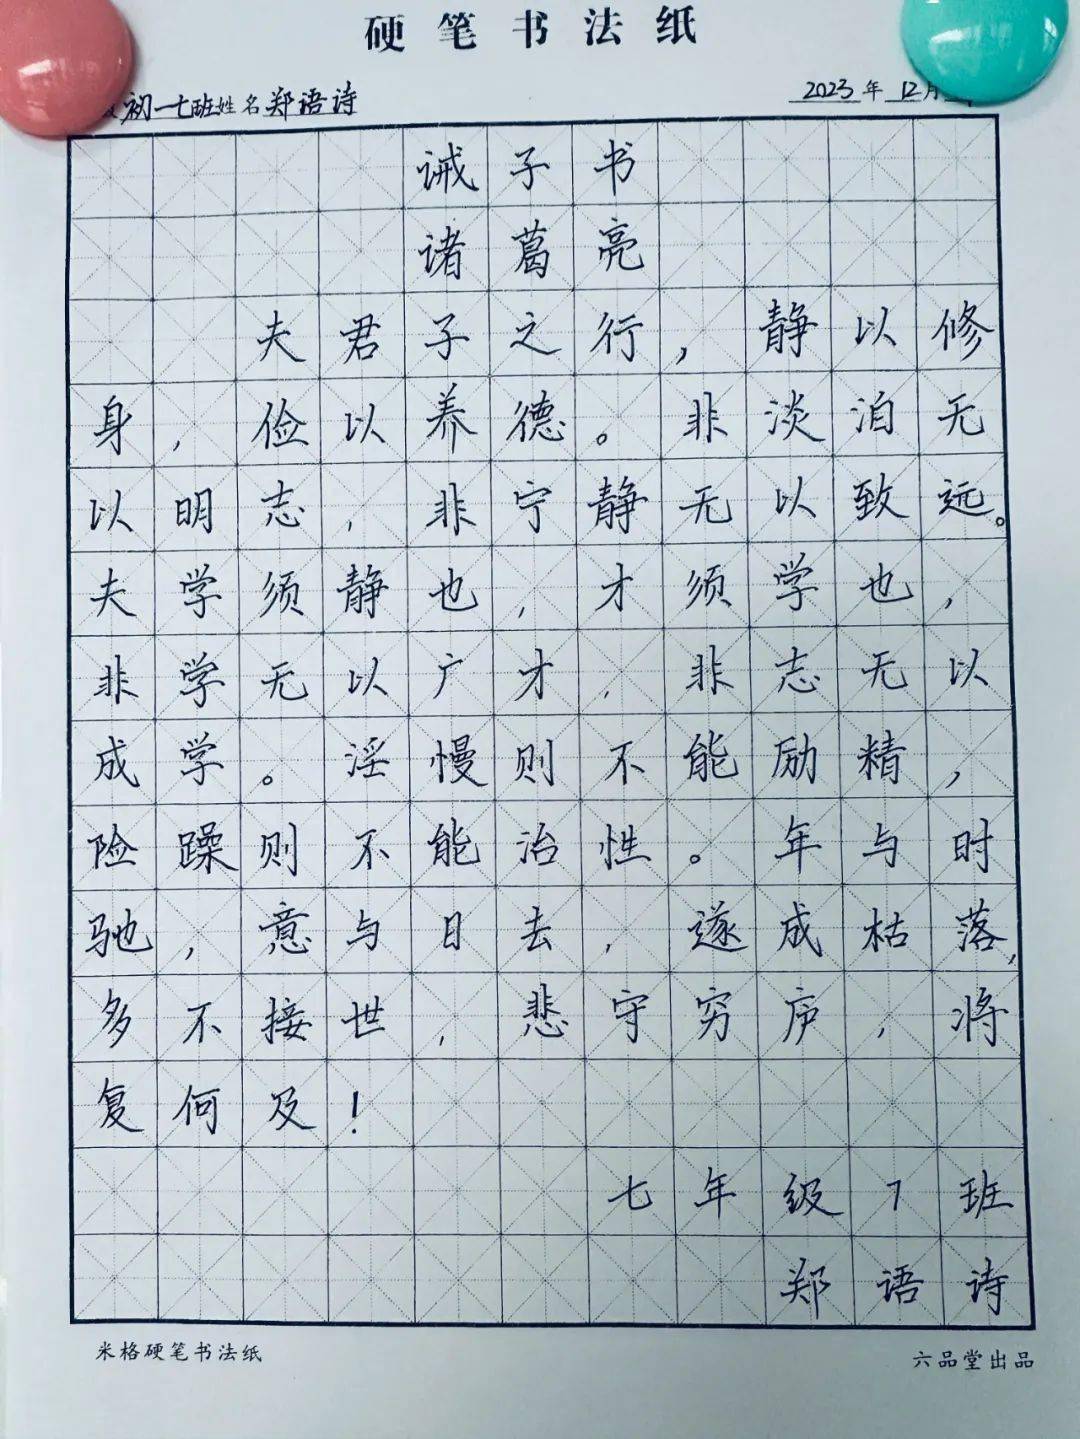 硬笔书法纸
初一七班姓名郑语诗 2023年12月
诫子书
诸葛亮
夫君子之行，静以修
身，俭以养德。非淡泊无
以明志，非宁静无以致远。
夫学须静也，才须学也，
非学无以广才，非志无以
成学。淫慢则不能励精，
险躁则不能治性。年与时
驰，意与日去，遂成枯落，
多不接世，悲守穷庐，将
复何及！
七年级7班
郑语诗
米格硬笔书法纸 六品堂出品